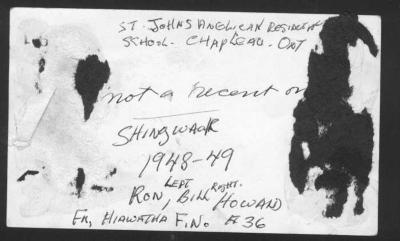 ST. JOHNS ANGLICAN RESIDENT
SCHOOL - CHAPLEAU - ONT
not a recent on
SHINGWACK
1948-49
LEFT RIGHT.
RON, BILL HOWARD
FR, HIAWATHA F.NO. #36